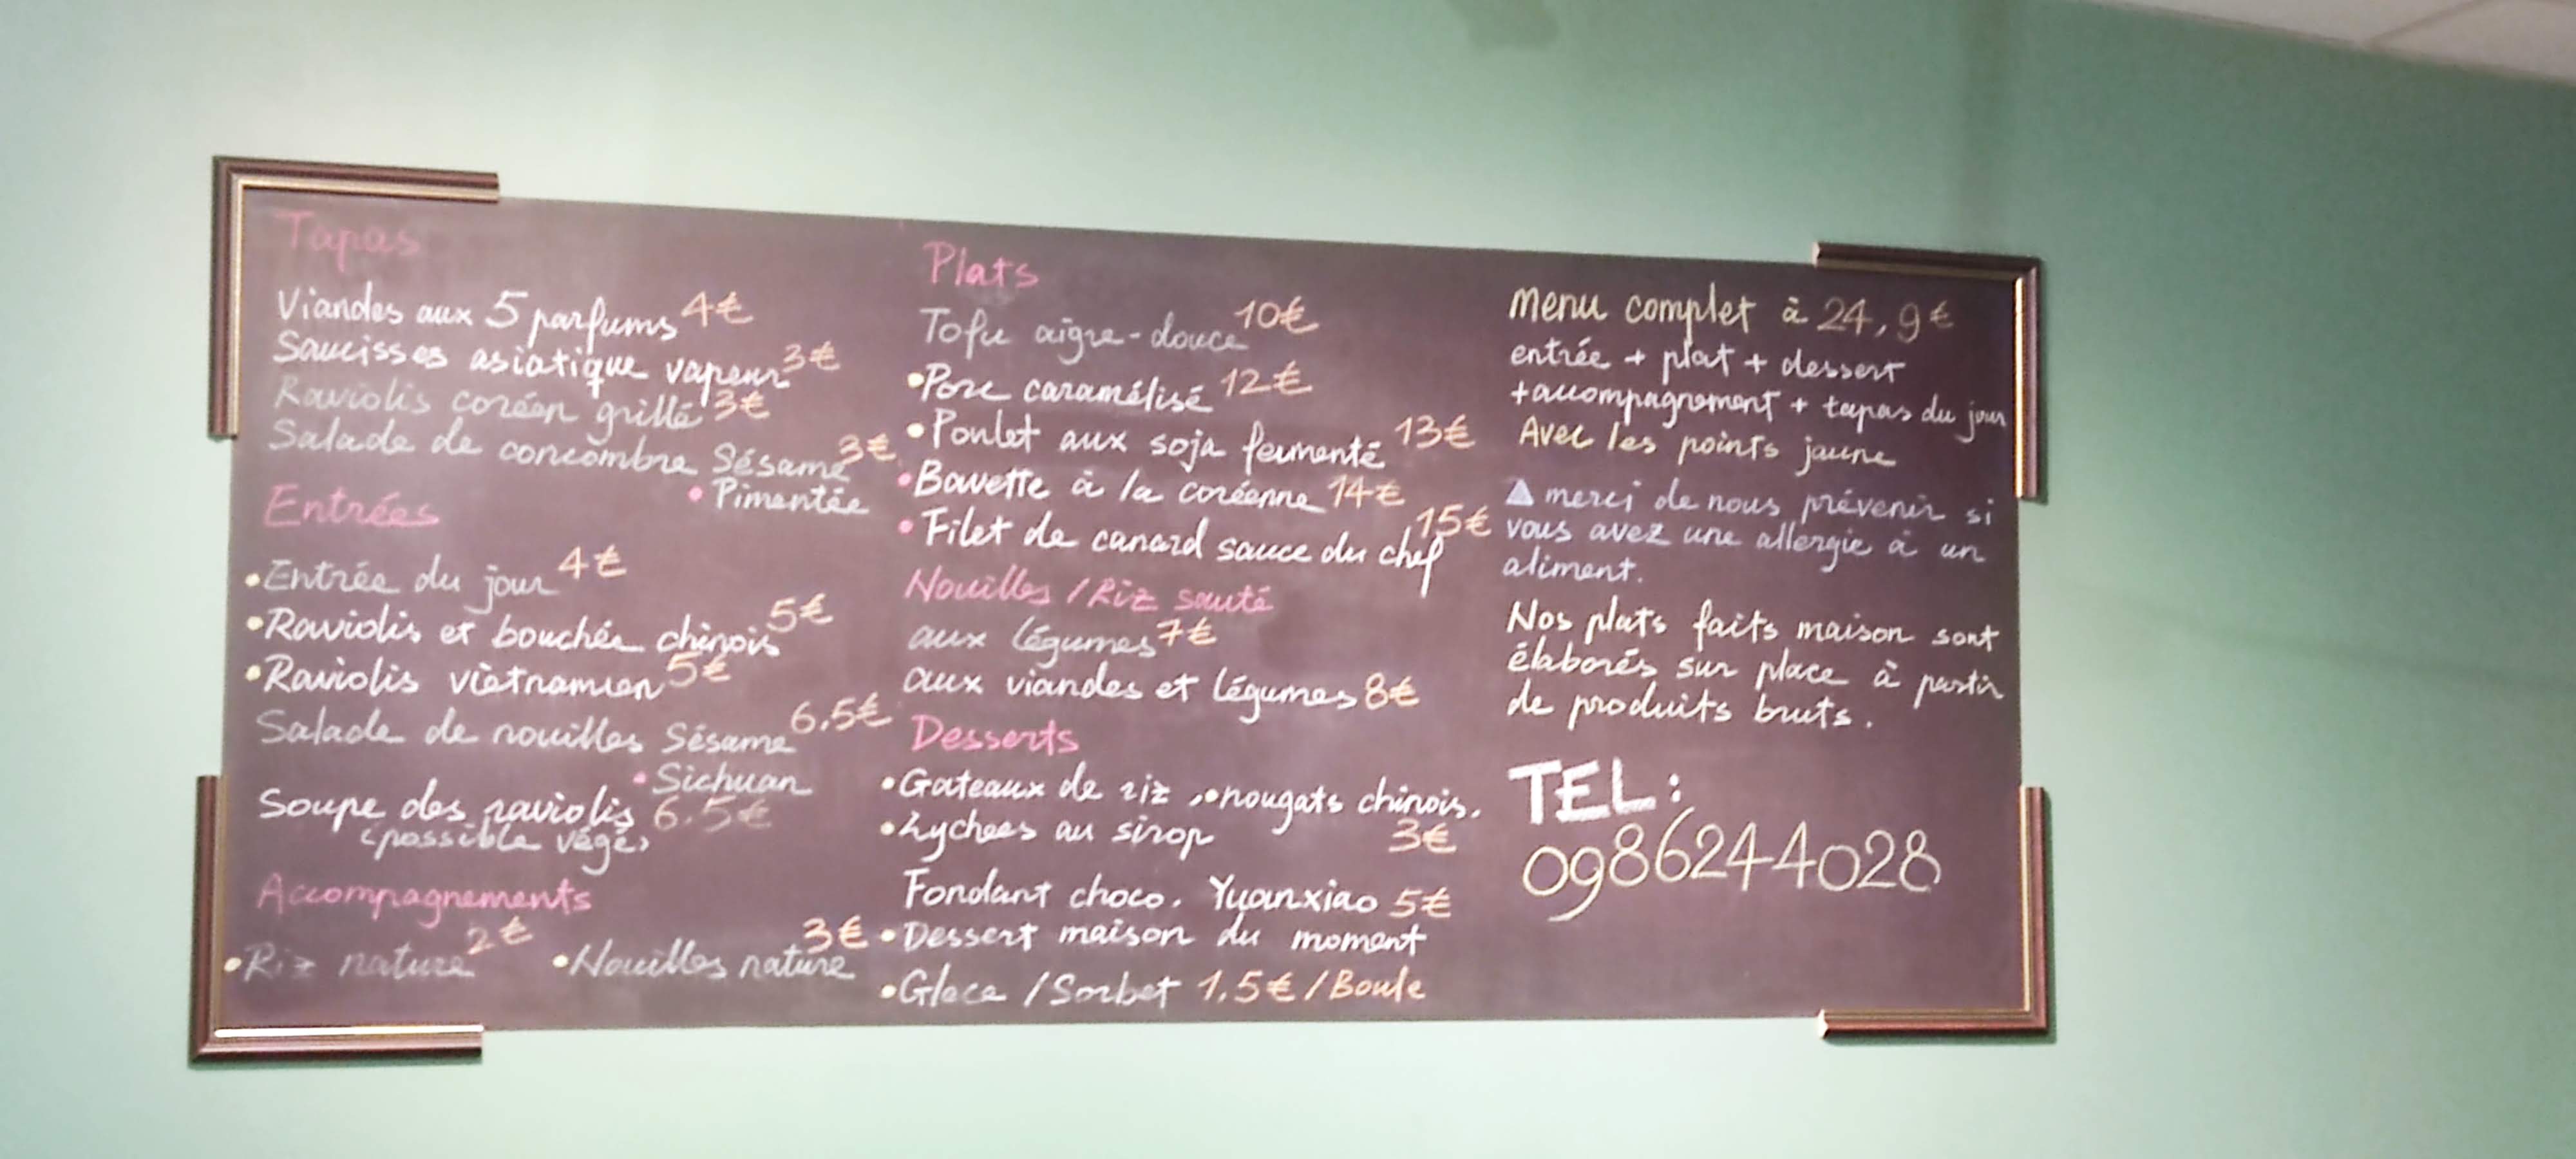 Tapas
Viandes aux 5 parfums 4€
Saucisses asiatique vapeur 3€
Raviolis coréen grillé 3€
Salade de concombre Sésame 3€
• Pimentée
Entrées
• Entrée du jour 4€
• Raviolis et bouchée chinois 5€
• Raviolis viètnamien 5€
Salade de nouilles Sésame 6.5€
• Sichuan
Soupe des raviolis 6.5€
(possible végé)
Accompagnements
• Riz nature 2€ • Nouilles nature 3€
Plats
Tofu aigre-douce 10€
• Porc caramélisé 12€
• Poulet aux soja fermenté 13€
• Bavette à la coréenne 14€
• Filet de canard sauce du chef 15€
Nouilles / Riz sauté
aux légumes 7€
aux viandes et légumes 8€
Desserts
• Gateaux de riz, • nougats chinois.
• Lychees au sirop 3€
Fondant choco. Yuanxiao 5€
• Dessert maison du moment
• Glace / Sorbet 1.5€ / Boule
menu complet à 24,9€
entrée + plat + dessert
+ accompagnement + tapas du jour
Avec les points jaune
▲ merci de nous prévenir si
vous avez une allergie à un
aliment.
Nos plats faits maison sont
élaborés sur place à partir
de produits bruts.
TEL:
0986244028